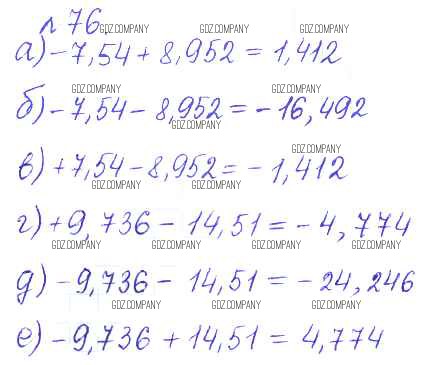 № 76.
GDZ.COMPANY GDZ.COMPANY GDZ.COMPANY
а) -7,54 + 8,952 = 1,412
GDZ.COMPANY GDZ.COMPANY
б) -7,54 - 8,952 = -16,492
GDZ.COMPANY
GDZ.COMPANY
в) +7,54 - 8,952 = -1,412
GDZ.COMPANY GDZ.COMPANY
г) +9,736 - 14,51 = -4,774
GDZ.COMPANY GDZ.COMPANY GDZ.COMPANY GDZ.COMPANY
д) -9,736 - 14,51 = -24,246
GDZ.COMPANY GDZ.COMPANY GDZ.COMPANY
е) -9,736 + 14,51 = 4,774